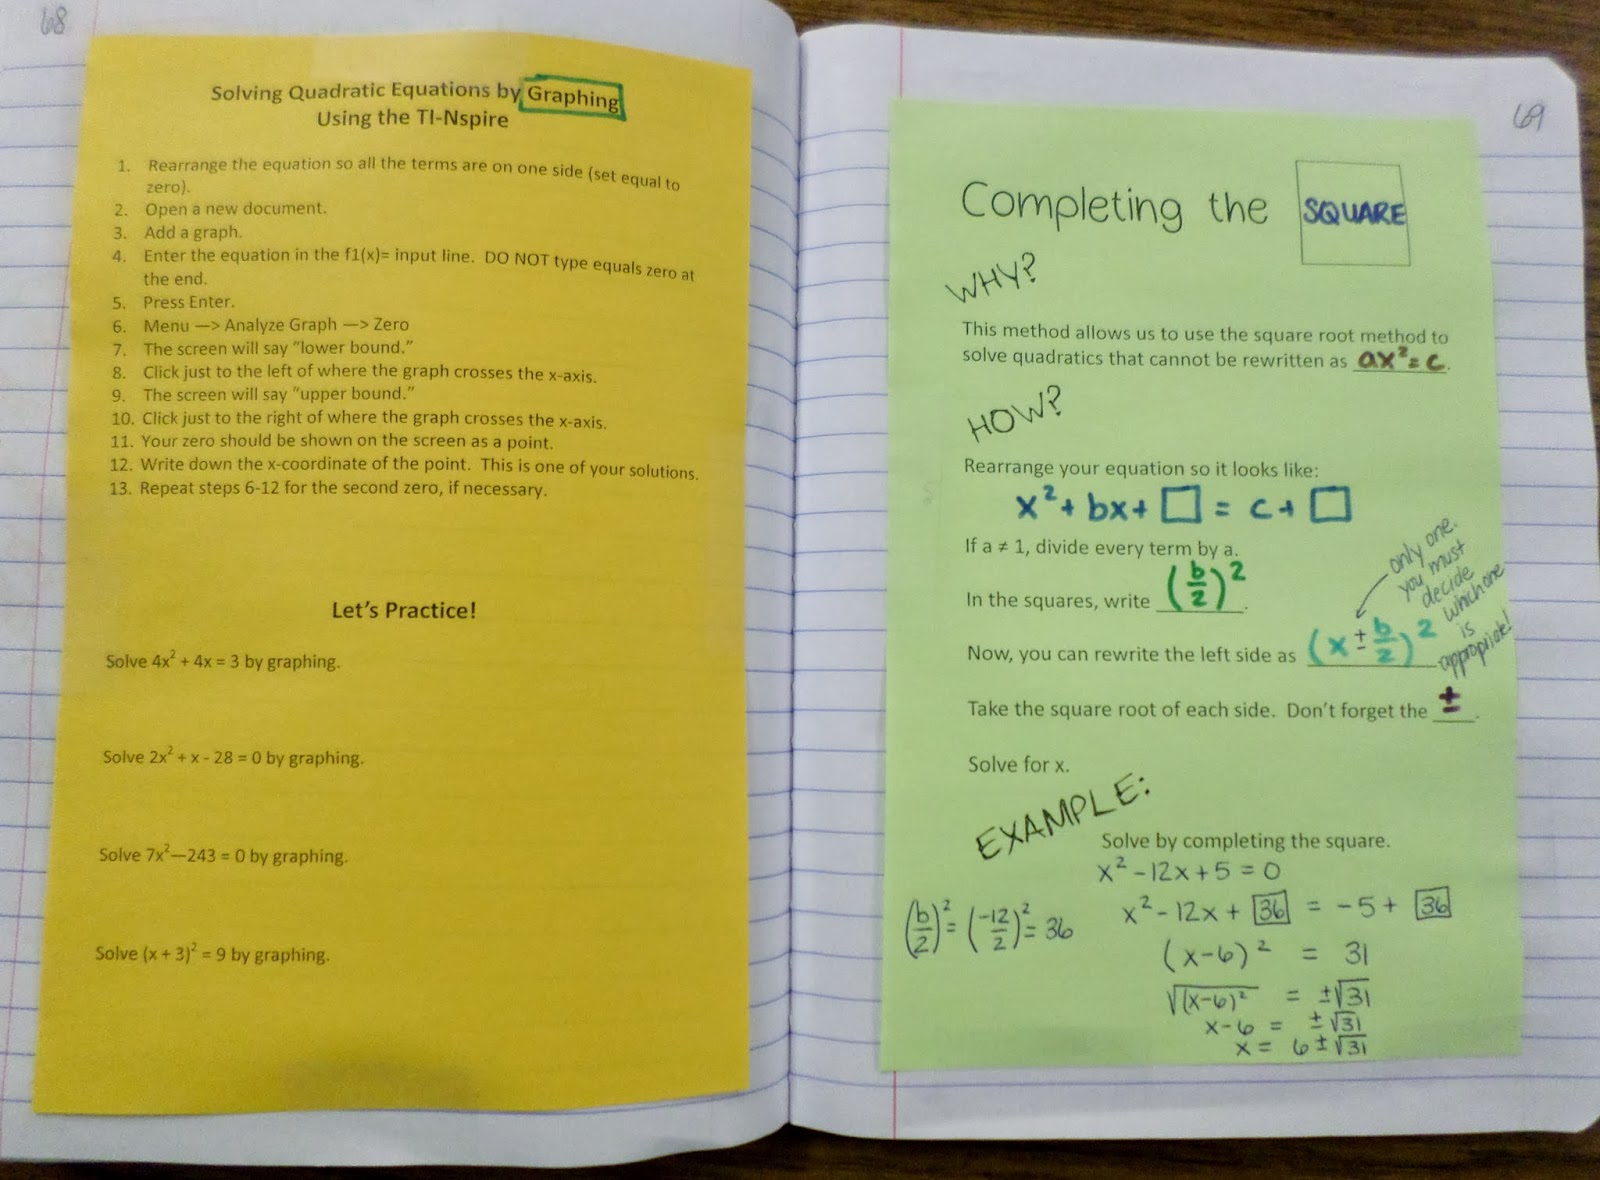 68
Solving Quadratic Equations by Graphing
Using the TI-Nspire
1. Rearrange the equation so all the terms are on one side (set equal to
zero).
2. Open a new document.
3. Add a graph.
4. Enter the equation in the f1(x)= input line. DO NOT type equals zero at
the end.
5. Press Enter.
6. Menu —> Analyze Graph —> Zero
7. The screen will say "lower bound."
8. Click just to the left of where the graph crosses the x-axis.
9. The screen will say "upper bound."
10. Click just to the right of where the graph crosses the x-axis.
11. Your zero should be shown on the screen as a point.
12. Write down the x-coordinate of the point. This is one of your solutions.
13. Repeat steps 6-12 for the second zero, if necessary.
Let's Practice!
Solve 4x² + 4x = 3 by graphing.
Solve 2x² + x - 28 = 0 by graphing.
Solve 7x²—243 = 0 by graphing.
Solve (x + 3)² = 9 by graphing.
69
Completing the SQUARE
WHY?
This method allows us to use the square root method to
solve quadratics that cannot be rewritten as ax² = c.
HOW?
Rearrange your equation so it looks like:
x² + bx + □ = c + □
If a ≠ 1, divide every term by a.
In the squares, write (b/2)².
Now, you can rewrite the left side as (x ± b/2)²
only one.
you must
decide
which one
is
appropriate!
Take the square root of each side. Don't forget the ±.
Solve for x.
EXAMPLE:
Solve by completing the square.
x² - 12x + 5 = 0
(b/2)² = (-12/2)² = 36
x² - 12x + 36 = -5 + 36
(x-6)² = 31
√(x-6)² = ±√31
x-6 = ±√31
x = 6 ± √31